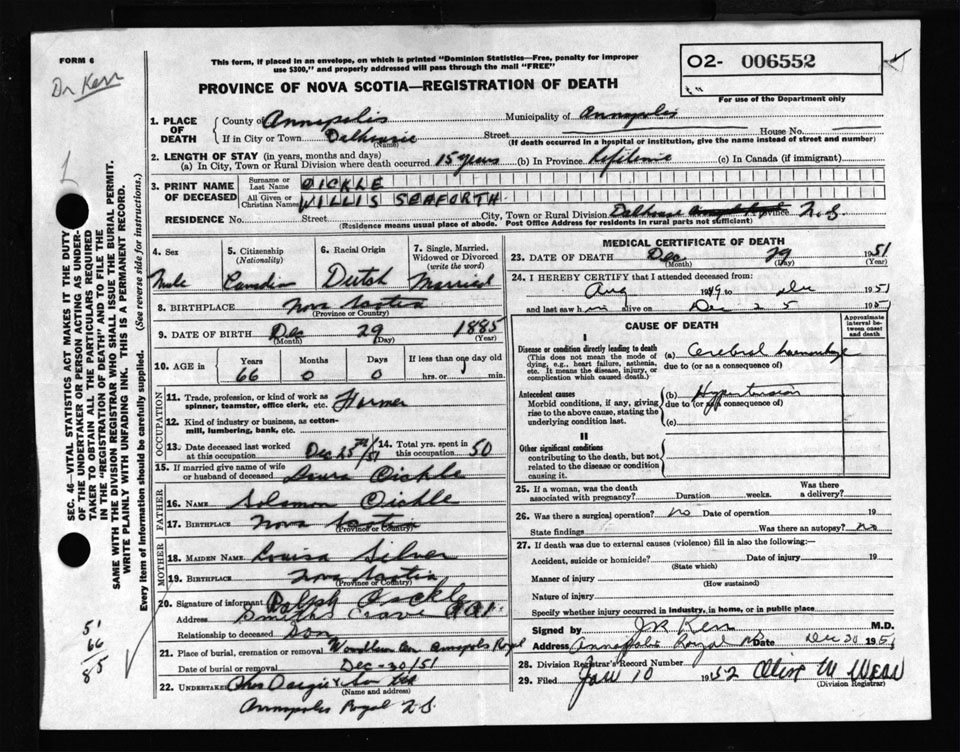 FORM 6
Dr Kerr
This form, if placed in an envelope, on which is printed "Dominion Statistics—Free, penalty for improper
use $300," and properly addressed will pass through the mail "FREE"
O2- 006552
PROVINCE OF NOVA SCOTIA—REGISTRATION OF DEATH
For use of the Department only
1. PLACE OF DEATH
County of Annapolis Municipality of Annapolis
If in City or Town Dalhousie Street House No.
(Name) (If death occurred in a hospital or institution, give the name instead of street and number)
2. LENGTH OF STAY (in years, months and days)
(a) In City, Town or Rural Division where death occurred 15 years (b) In Province Lifetime (c) In Canada (if immigrant)
3. PRINT NAME OF DECEASED
Surname or Last Name OICKLE
All Given or Christian Names WILLIS SEAFORTH
RESIDENCE No. Street City, Town or Rural Division Dalhousie Province N.S.
(Residence means usual place of abode. Post Office Address for residents in rural parts not sufficient)
4. Sex Male
5. Citizenship (Nationality) Canadian
6. Racial Origin Dutch
7. Single, Married, Widowed or Divorced (write the word) Married
8. BIRTHPLACE Nova Scotia
(Province or Country)
9. DATE OF BIRTH Dec 29 1885
(Month) (Day) (Year)
10. AGE in Years Months Days If less than one day old
66 0 0 hrs. or min.
OCCUPATION
11. Trade, profession, or kind of work as
spinner, teamster, office clerk, etc. Farmer
12. Kind of industry or business, as cotton-
mill, lumbering, bank, etc.
13. Date deceased last worked at this occupation Dec 25th/51
14. Total yrs. spent in this occupation 50
15. If married give name of wife
or husband of deceased Laura Oickle
FATHER
16. NAME Solomon Oickle
17. BIRTHPLACE Nova Scotia
(Province or Country)
MOTHER
18. MAIDEN NAME Louisa Silver
19. BIRTHPLACE Nova Scotia
(Province or Country)
20. Signature of informant Ralph Oickle
Address Smiths Cove
Relationship to deceased Son
21. Place of burial, cremation or removal Annapolis Royal
Date of burial or removal Dec-30/51
22. UNDERTAKER & Son Ltd
(Name and address)
Annapolis Royal N.S.
MEDICAL CERTIFICATE OF DEATH
23. DATE OF DEATH Dec 29 1951
(Month) (Day) (Year)
24. I HEREBY CERTIFY that I attended deceased from
Aug 1949 to Dec 1951
and last saw him alive on Dec 25 1951
CAUSE OF DEATH
Approximate interval between onset and death
I
Disease or condition directly leading to death
(This does not mean the mode of
dying, e.g., heart failure, asthenia,
etc. It means the disease, injury, or
complication which caused death.)
(a) Cerebral haemorrhage
due to (or as a consequence of)
Antecedent causes
Morbid conditions, if any, giving
rise to the above cause, stating the
underlying condition last.
(b) Hypertension
due to (or as a consequence of)
(c)
II
Other significant conditions
contributing to the death, but not
related to the disease or condition
causing it.
25. If a woman, was the death
associated with pregnancy? Duration weeks. Was there a delivery?
26. Was there a surgical operation? no Date of operation 19
State findings Was there an autopsy? no
27. If death was due to external causes (violence) fill in also the following:—
Accident, suicide or homicide? Date of injury 19
(State which)
Manner of injury
(How sustained)
Nature of injury
Specify whether injury occurred in industry, in home, or in public place
Signed by J R Kerr M.D.
Address Annapolis Royal NS Date Dec 30 1951
28. Division Registrar's Record Number
29. Filed Jan 10 1952
(Division Registrar)
SEC. 46—VITAL STATISTICS ACT MAKES IT THE DUTY
OF THE UNDERTAKER OR PERSON ACTING AS UNDER-
TAKER TO OBTAIN ALL THE PARTICULARS REQUIRED
IN THE "REGISTRATION OF DEATH" AND TO FILE THE
SAME WITH THE DIVISION REGISTRAR WHO SHALL ISSUE THE BURIAL PERMIT.
WRITE PLAINLY WITH UNFADING INK. THIS IS A PERMANENT RECORD.
Every item of Information should be carefully supplied. (See reverse side for instructions.)
51
66
85